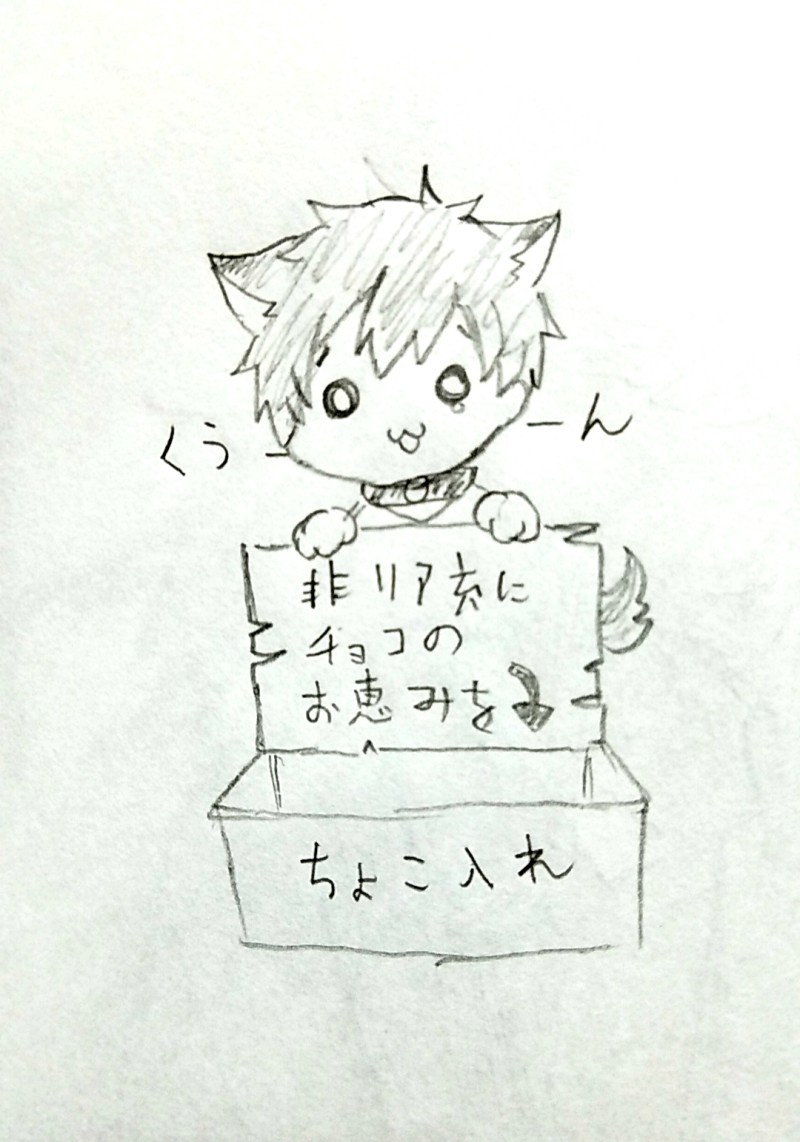 くぅーーん
非リア充に
チョコの
お恵みを
ちょこ入れ